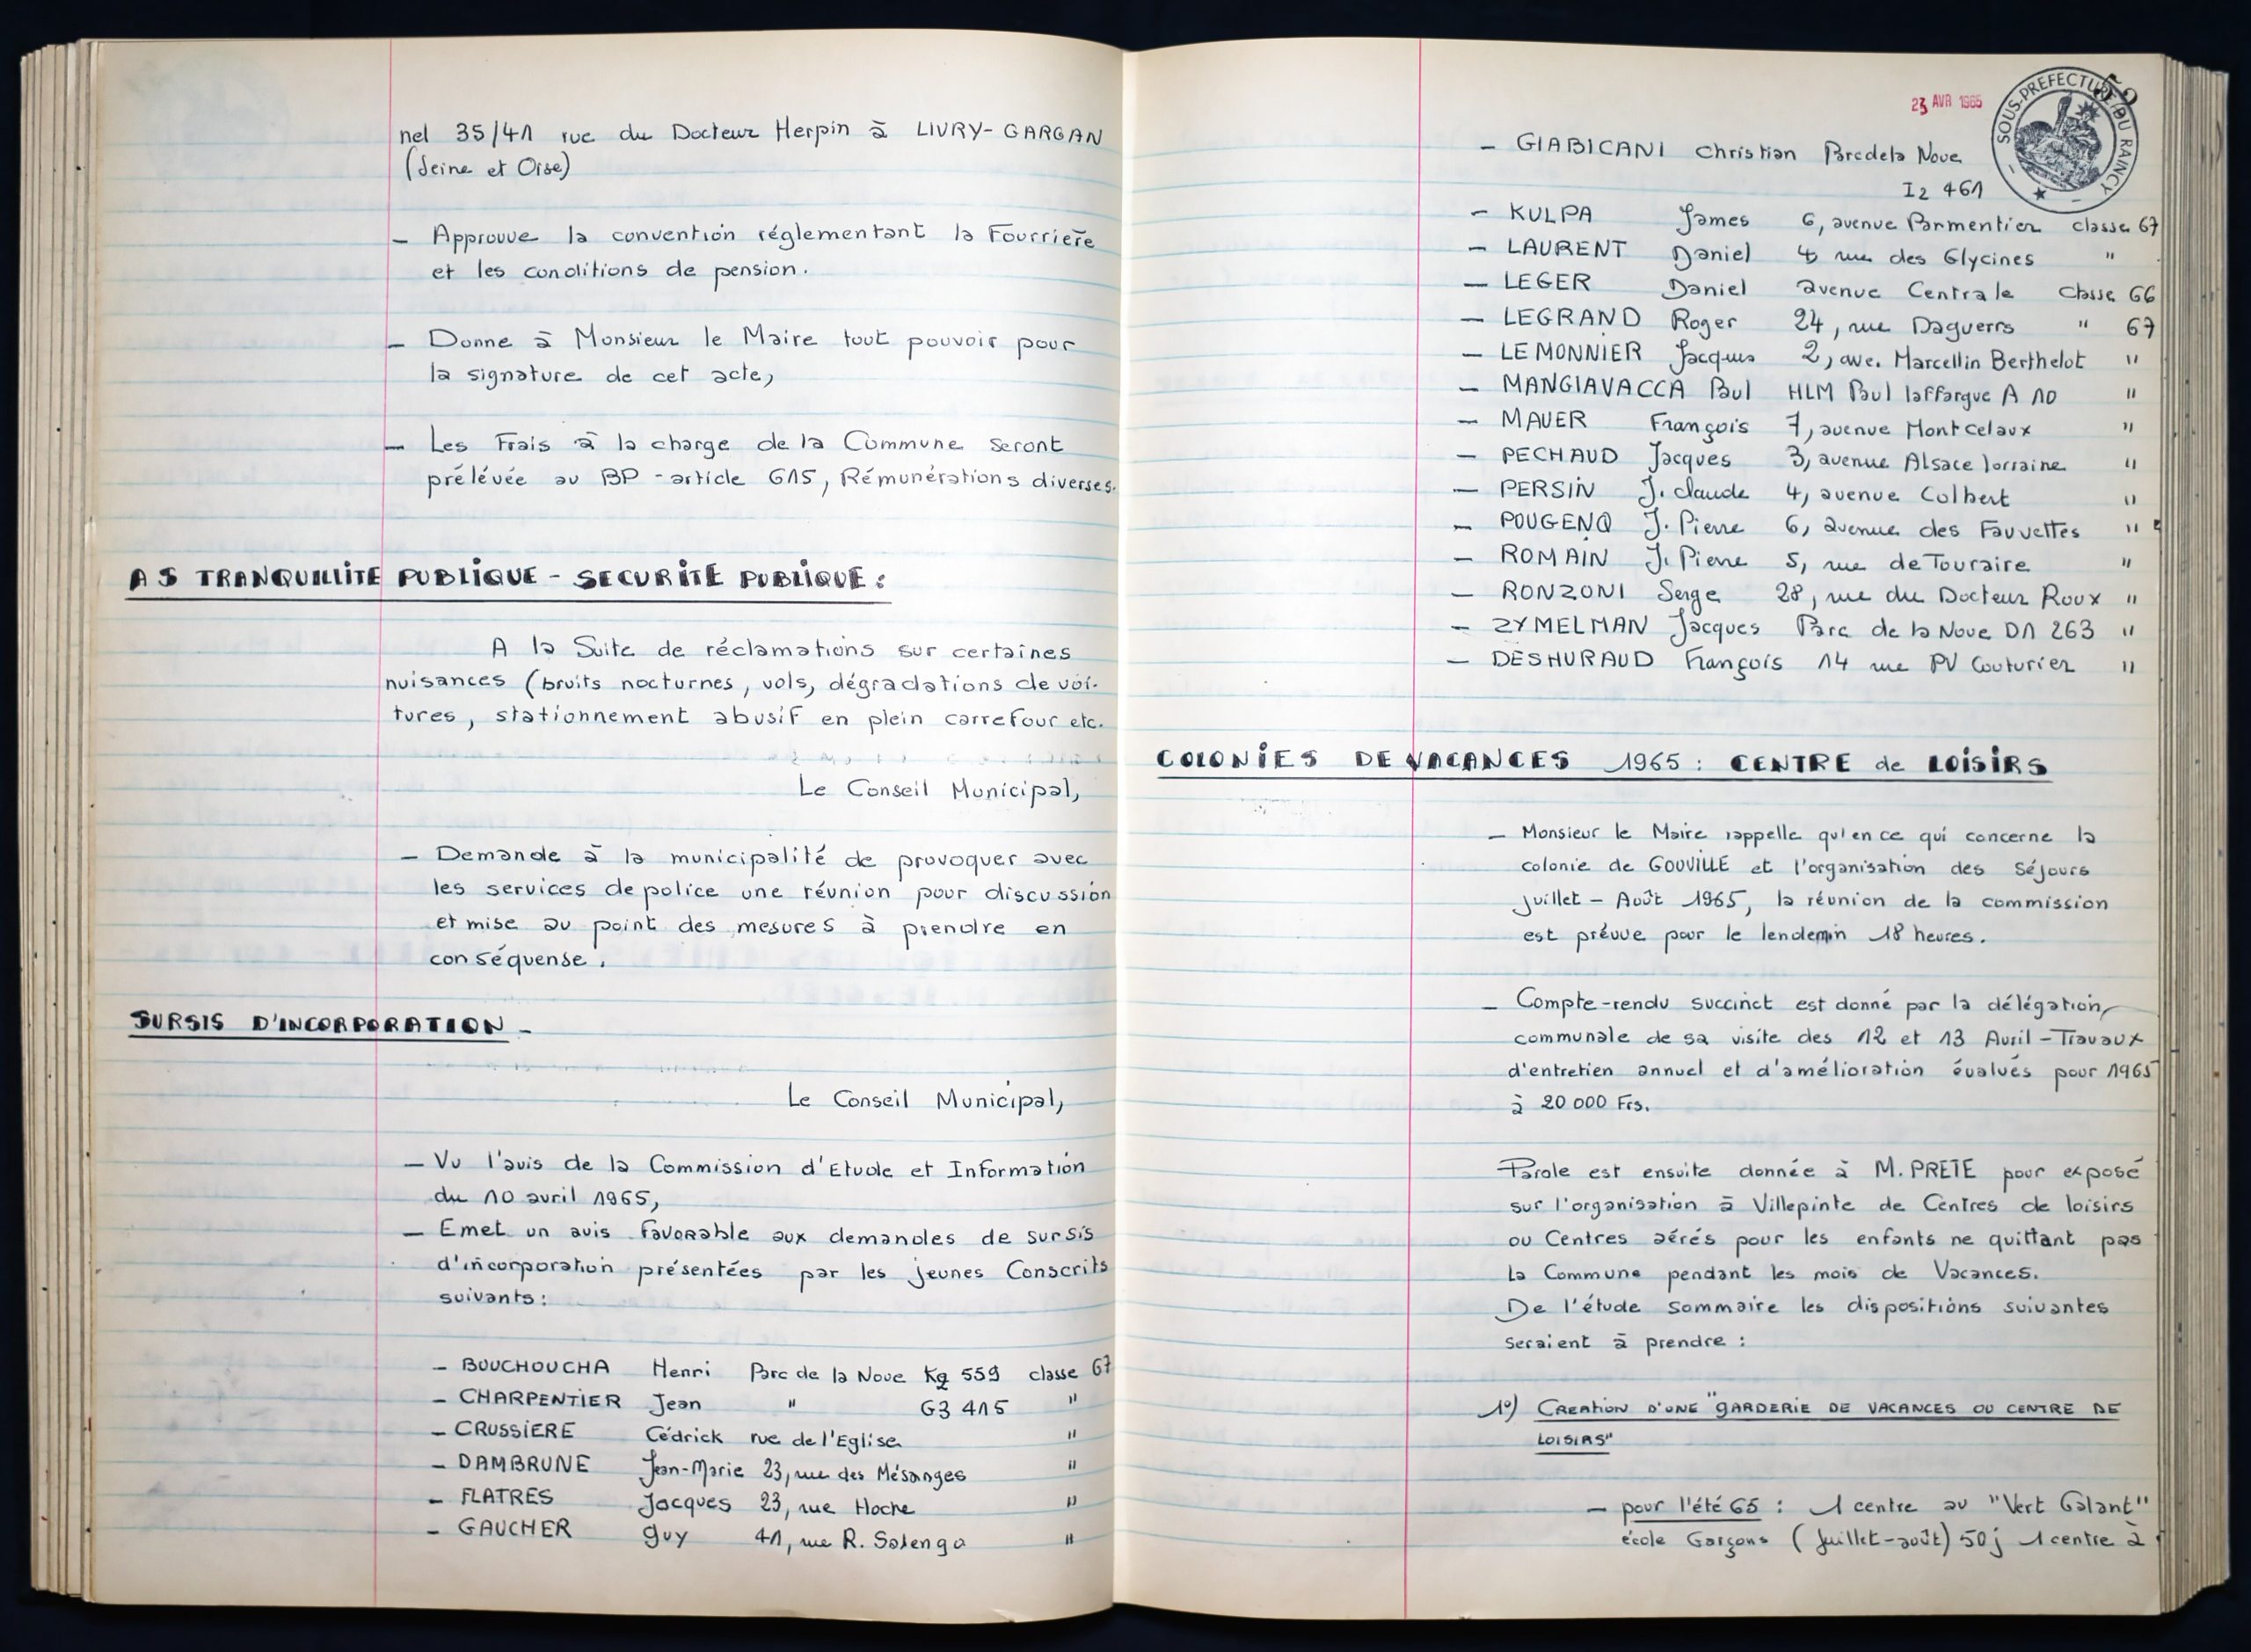 nel 35/41 rue du Docteur Herpin à LIVRY-GARGAN
(Seine et Oise)
- Approuve la convention réglementant la Fourrière
et les conditions de pension.
- Donne à Monsieur le Maire tout pouvoir pour
la signature de cet acte,
- Les Frais à la charge de la Commune seront
prélévée au BP - article 615, Rémunérations diverses.
A5 TRANQUILLITE PUBLIQUE - SECURITE PUBLIQUE :
A la Suite de réclamations sur certaines
nuisances (bruits nocturnes, vols, dégradations de voi-
tures, stationnement abusif en plein carrefour etc.
Le Conseil Municipal,
- Demande à la municipalité de provoquer avec
les services de police une réunion pour discussion
et mise au point des mesures à prendre en
conséquense.
SURSIS D'INCORPORATION -
Le Conseil Municipal,
- Vu l'avis de la Commission d'Etude et Information
du 10 avril 1965,
- Emet un avis favorable aux demandes de sursis
d'incorporation présentées par les jeunes Conscrits
suivants :
- BOUCHOUCHA Henri Parc de la Noue Kg 559 classe 67
- CHARPENTIER Jean " G3 415 "
- CRUSSIERE Cédrick rue de l'Eglise "
- DAMBRUNE Jean-Marie 23, rue des Mésanges "
- FLATRES Jacques 23, rue Hoche "
- GAUCHER Guy 41, rue R. Salengo "
23 AVR 1965
SOUS-PREFECTURE DU RAINCY
- GIABICANI Christian Parc de la Noue
I2 461
- KULPA James 6, avenue Parmentier classe 67
- LAURENT Daniel 4 rue des Glycines "
- LEGER Daniel avenue Centrale Classe 66
- LEGRAND Roger 24, rue Daguerrs " 67
- LEMONNIER Jacques 2, ave. Marcellin Berthelot "
- MANGIAVACCA Paul HLM Paul laffargue A 10 "
- MAUER François 7, avenue Montcelaux "
- PECHAUD Jacques 3, avenue Alsace lorraine "
- PERSIN J. claude 4, avenue Colbert "
- POUGENQ J. Pierre 6, avenue des Fauvettes "
- ROMAIN J. Pierre 5, rue de Touraire "
- RONZONI Serge 28, rue du Docteur Roux "
- ZYMELMAN Jacques Parc de la Noue D1 263 "
- DESHURAUD François 14 rue PV Couturier "
COLONIES DE VACANCES 1965 : CENTRE de LOISIRS
- Monsieur le Maire rappelle qu'en ce qui concerne la
colonie de GOUVILLE et l'organisation des Séjours
juillet - Août 1965, la réunion de la commission
est prévue pour le lendemin 18 heures.
- Compte-rendu succinct est donné par la délégation
communale de sa visite des 12 et 13 Avril - Travaux
d'entretien annuel et d'amélioration évalués pour 1965
à 20 000 Frs.
Parole est ensuite donnée à M. PRETE pour exposé
sur l'organisation à Villepinte de Centres de loisirs
ou Centres aérés pour les enfants ne quittant pas
la Commune pendant les mois de Vacances.
De l'étude sommaire les dispositions suivantes
seraient à prendre :
1°) CREATION D'UNE "GARDERIE DE VACANCES OU CENTRE DE
LOISIRS"
- pour l'été 65 : 1 centre au "Vert Galant"
école Garçons (Juillet-août) 50 j 1 centre à